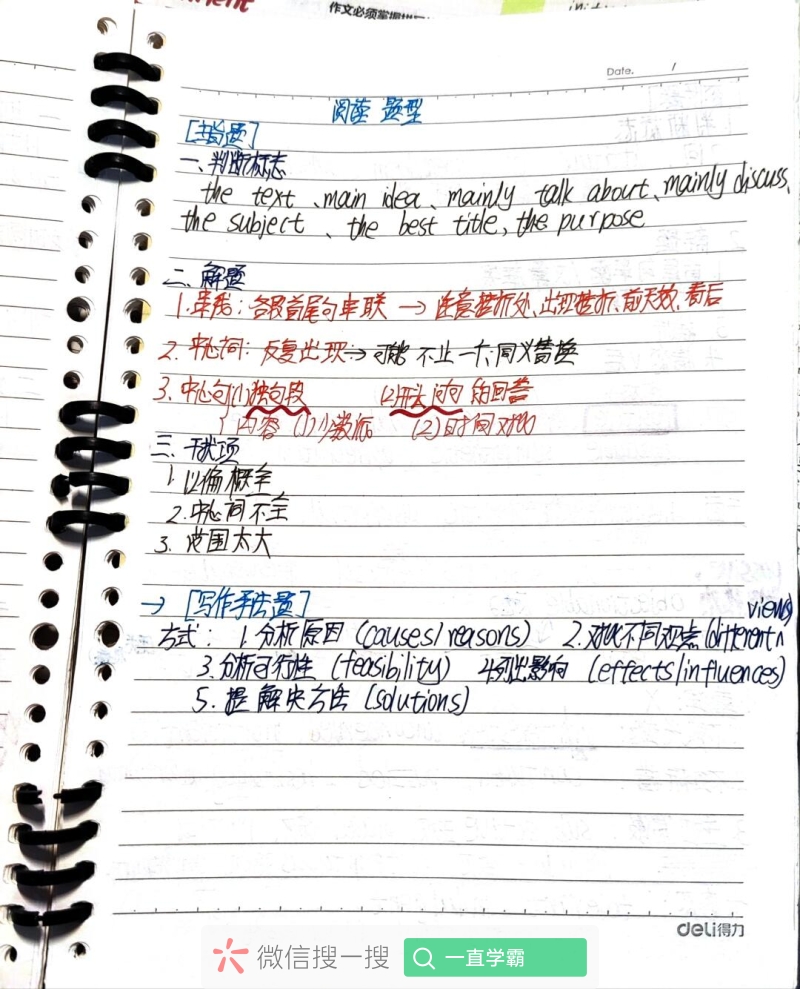 作文必须掌握
Date. /
阅读 题型
[主旨题]
一、判断标志
the text、main idea、mainly talk about、mainly discuss、
the subject 、the best title, the purpose
二、解题
1.串线:各段首尾句串联 → 注意转折处,出现转折,前无效,看后
2. 中心词: 反复出现→可能 不止一个,同义替换
3. 中心句(1)独句段 (2)开头问句 的回答
内容 (1)数据 (2)时间对比
三、干扰项
1. 以偏概全
2.中心词不全
3. 范围太大
→ [写作手法题]
views)
方式: 1.分析原因 (causes/reasons) 2.对比不同观点(different ∧
3.分析可行性 (feasibility) 4列出影响 (effects/influences)
5.提 解决方法 (solutions)
deli得力
微信搜一搜 一直学霸